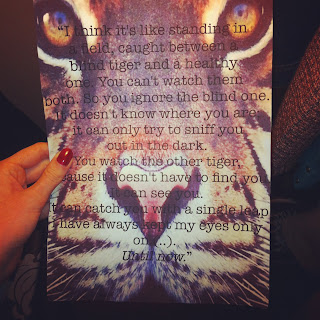 "I think it's like standing in
a field, caught between a
blind tiger and a healthy
one. You can't watch them
both. So you ignore the blind one.
It doesn't know where you are;
it can only try to sniff you
out in the dark.
You watch the other tiger,
'cause it doesn't have to find you
it can see you.
It can catch you with a single leap
have always kept my eyes only
on (..).
Until now."